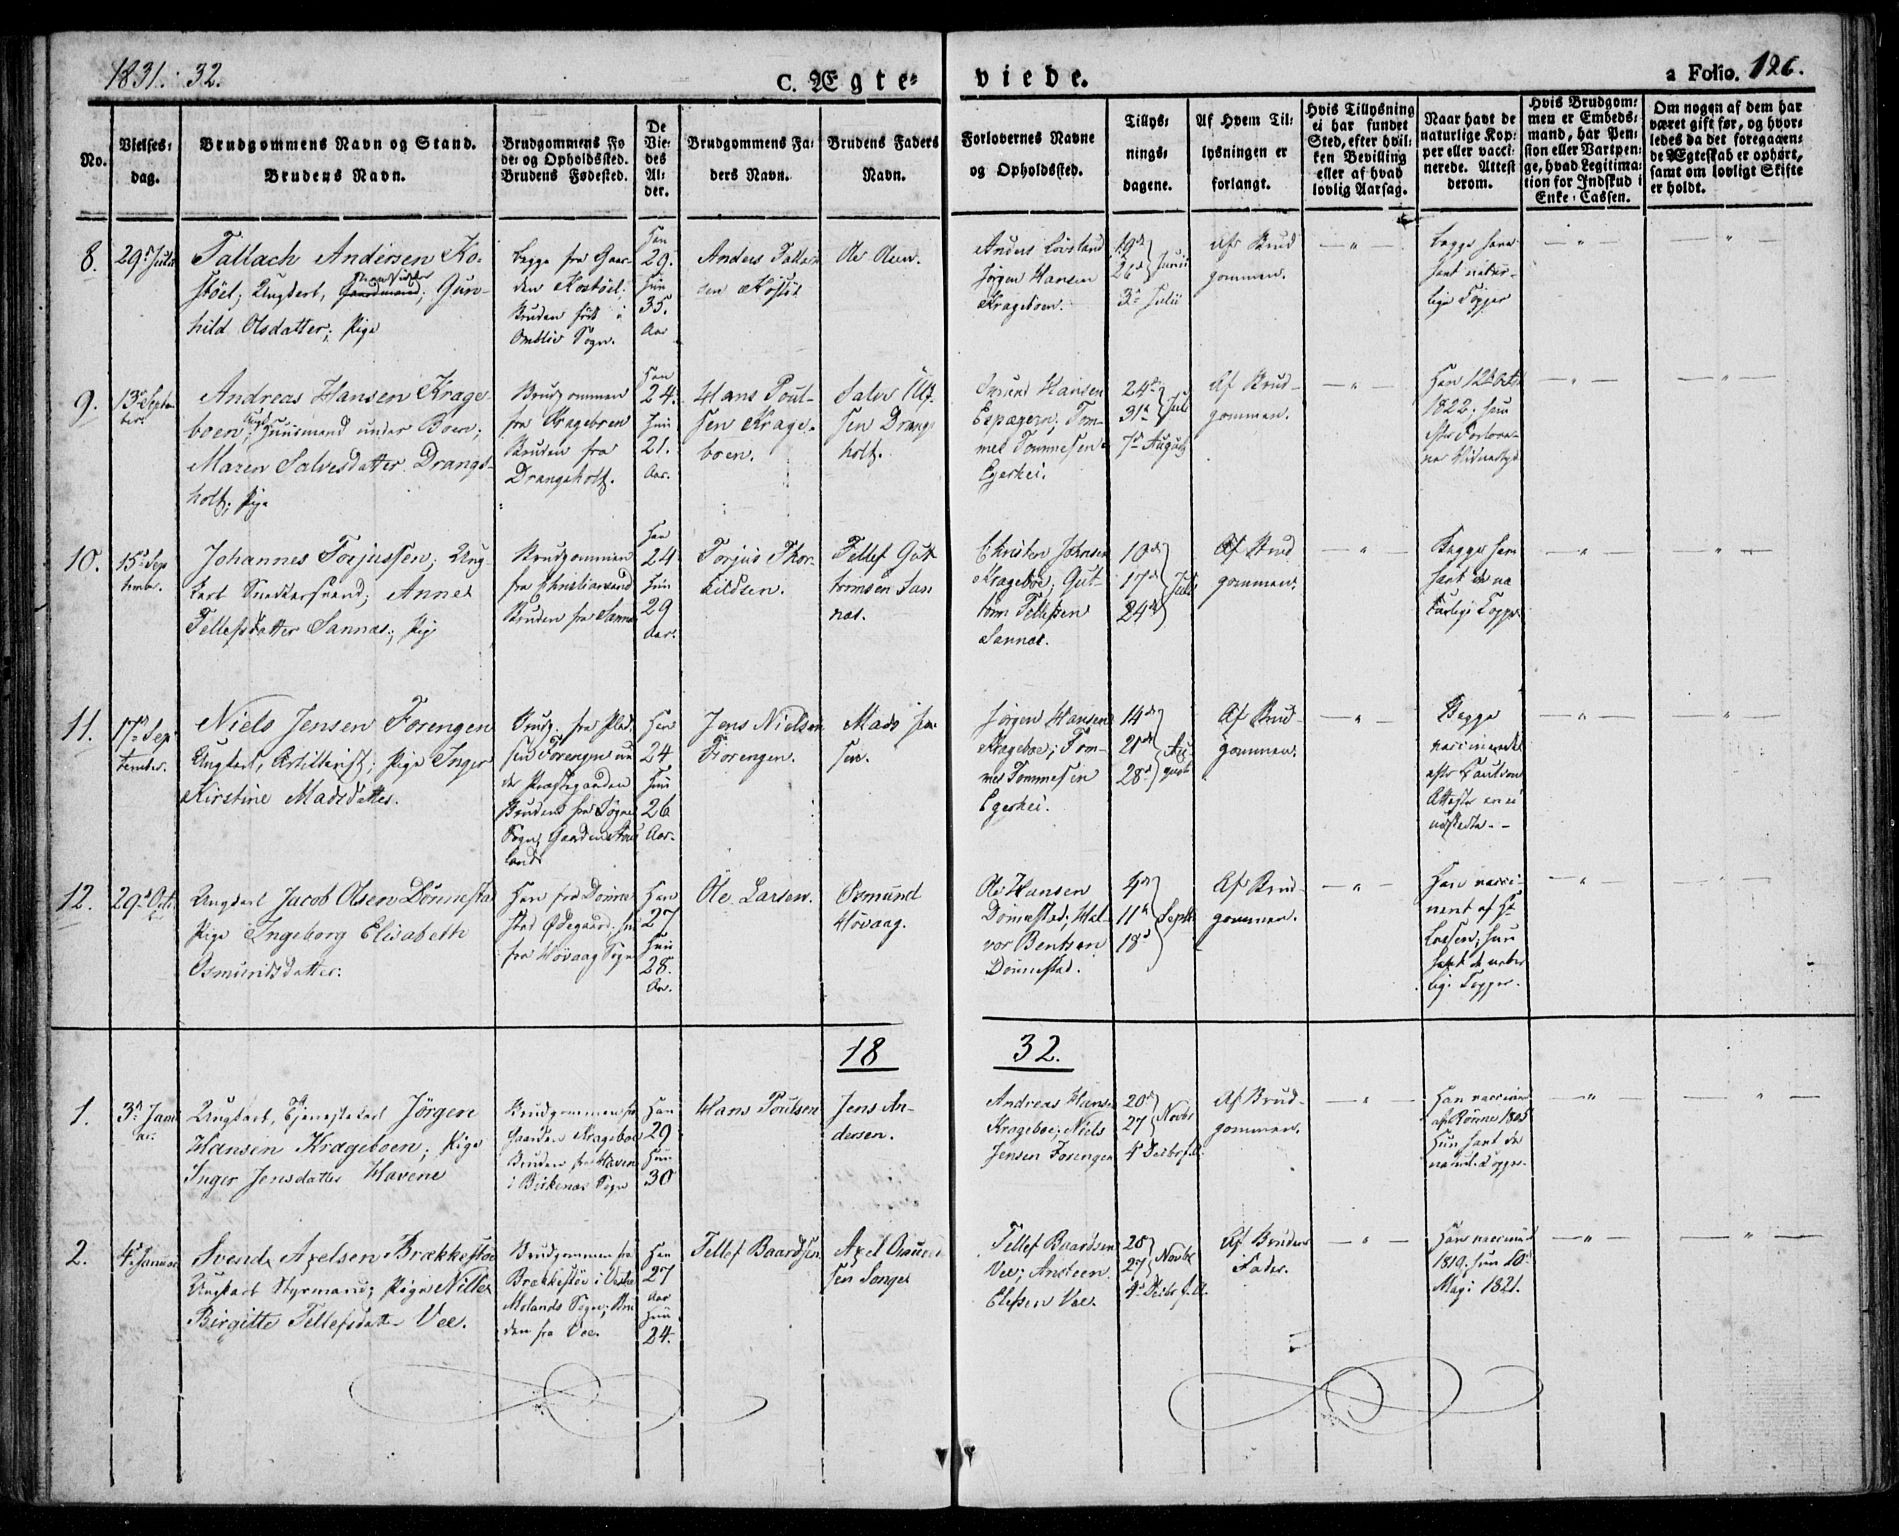 1831.-32.
C. Ægte-
viede.
a Folio. 126.
No.
Vielses-
dag.
Brudgommens Navn og Stand.
Brudens Navn.
Brudgommens Fø
de- og Opholdssted.
Brudens Fødested.
De
Vie-
des
Al-
der.
Brudgommens Fa-
ders Navn.
Brudens Faders
Navn.
Forlovernes Navne
og Opholdssted.
Tillys-
nings-
dagene.
Af Hvem Til-
lysningen er
forlangt.
Hvis Tillysning
ei har fundet
Sted, efter hvil-
ken Bevilling
eller af hvad
lovlig Aarsag.
Naar havt de
naturlige Kop-
per eller vacci-
nerede. Attest
derom.
Hvis Brudgom-
men er Embeds-
mand, har Pen-
sion eller Vartpen-
ge, hvad Legitima-
tion for Indskud i
Enke-Cassen.
Om nogen af dem har
været gift før, og hvor-
ledes da det foregaaen-
de Ægteskab er ophørt,
samt om lovligt Skifte
er holdt.
8.
29d Julii
Tallach Andersen Ko-
støel; Ungkarl, Gaardmand; Gun-
hild Olsdatter; Pige
begge fra Gaar-
den Kostøel;
Bruden født i
Omblie Sogn.
Han
29.
Hun
35.
Aar
Anders Tallach
sen
Ole Olsen.
Anders
Jørgen Hansen
Krageboen.
19d
26d Junii
3d Julii
Af Brud
gommen.
begge have
havt natur-
lige Copper
9.
13d Septe-
ber.
Andreas Hansen Krage-
boen; Huusmand under Boen;
Maren Salvesdatter Drangs-
holt; Pige
Brudgommen
fra Krageboen
Bruden fra
Drangsholt.
Han
24.
Hun
21.
Aar.
Hans Poul-
sen Krage-
boen.
Salve Ulf-
sen Drangs
holt.
Hansen
Tom-
mes Tommesen
Egerhei.
24d
31d Juli
7d August
Af Brud-
gommen.
Han 12 Octbr
1822. Hun
efter Forlover-
nes Vidnesbyrd
10.
15d Sep
tembr.
Johannes Torjussen; Ung
karl Snedkersvend; Anne
Tellefsdatter Sannes; Pige
Brudgommen
fra Christiansand
Bruden fra Sannes
Han
24
Hun
29
Aar.
Torjus Thor-
kildsen.
Tellef Gut-
tormsen San
nes.
Christen Johnsen
Krageboe; Gut-
torm Tellefsen
Sannes.
10d
17d Juli
24d
Af Brud
gommen.
Begge have
havt de na
turlige Copper
11.
17d Sep
tember.
Niels Jensen Forengen
Ungkarl, Artillerist; Pige Inger
Kirstine Madsdatter.
Brudg. fra Plad
sen Forengen un
der Præstegaarden
Bruden fra Søgne
Sogn; Gaarden
land
Han
24
Hun
26
Aar.
Jens Nielsen
Forengen.
Mads Jen
sen.
Jørgen Hansen
Krageboe; Tom-
mes Tommesen
Egerhei.
14d
21d Au-
28d gust
Af Brud-
gommen.
Begge
vaccinerede
efter
Attester ere ei
udstedte.-
12.
29d Octb
Ungkarl Jacob Olsen Dønnestad
Pige Ingeborg Elisabeth
Osmundsdatter.
Han fra Dønne
stad Ødegaard; hun
fra Høvaag Sogn
Han
27
Hun
28.
Aar.
Ole Larsen.
Osmund
Høvaag.
Ole Hansen
Dønnestad; Hal-
vor Bentsen
Dønnestad.
4d
11d Septb.
18d
Af Brud-
gommen.
Han vacci-
neret af Hr
Lassen; Hun
havt de natur
lige Copper.
18
32.
1.
3d Janu
ar.
Ungkarl, Tjenestekarl Jörgen
Hansen Krageboen; Pige
Inger Jensdatter Havene
Brudgommen fra
Gaarden Krageboe
Bruden fra Haven
i Birkenæs Sogn
Han
29
Hun
30
Hans Poulsen
Jens An-
dersen.
Andreas Hanse
Krageboe; Niels
Jensen Forengen
20d
27 Novbr
4 Decbr
Af Brud-
gommen.
Han vaccineret
af Rønne 1805
Hun havt de
naturl. Copper.
2.
4d Januar
Svend Axelsen Brækkestøe
Ungkarl Styrmand; Pige Nille
Birgitte Tellefsdatter Vee.
Brudgommen fra
Brækkestøe i Vestre
Molands Sogn; Bru
den fra Vee.
Han
27
Aar
Hun
24.
Tellef Baardsen
Axel
sen Songe
Tellef Baardsen
Vee; Ansteen
Elefsen Vee.
20
27 Novbr
4d Decbr
Af Brudens
Fader.
Han vaccineret
1819. Hun 10de
Maji 1821.